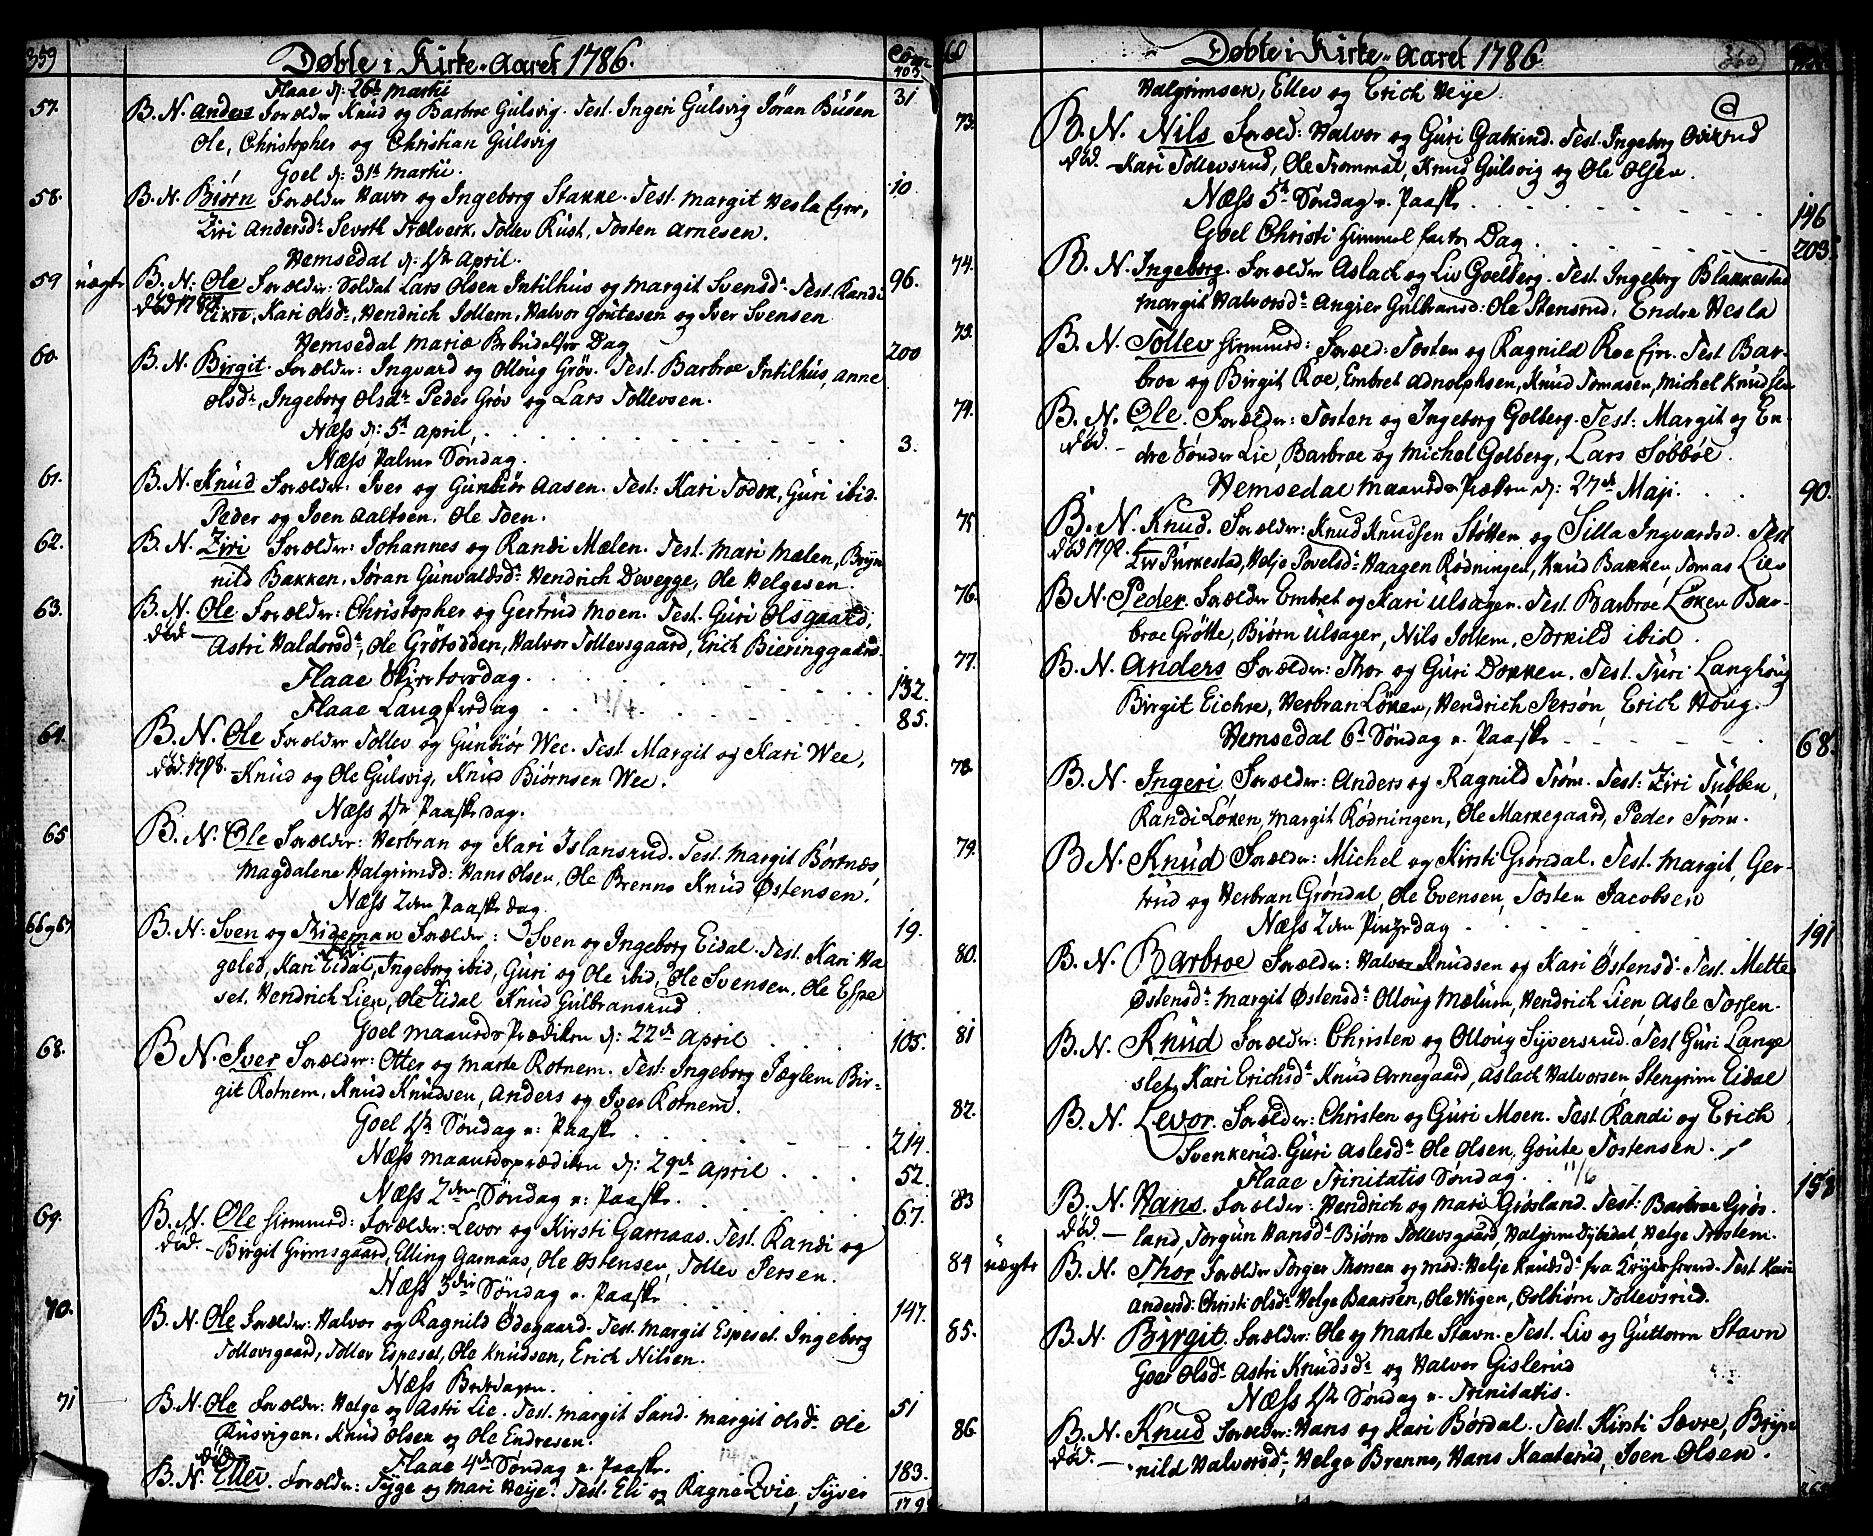 359 Døbte i Kirke-Aaret 1786.
Flaae d: 26d Martii 31
57. B. N. Anders Forælder Knud og Barbroe Gulsvig. Test. Ingeri Gulsvig Jøran Busen
Ole, Christopher og Christian Gulsvig
Goel d: 31d Martii. 10
58. B. N. Biørn Forælder Havor og Ingeborg Stakke. Test. Margit Hesla
Ziri Andersd. Sevrth Trælverk. Tollev Rust, Tosten Arnesen.
Hemsedal d: 1ste April. 96.
59 nægte B. N: Ole Forælder: Soldat Lars Olsen Intilhus og Margit Svensd. Test. Randi
død 1788. Eikre, Kari Olsd., Hendrich Jollem, Halvor Goutesen og Iver Svensen
Hemsedal Mariæ Bebudelses Dag 200
60. B. N. Birgit. Forælder: Ingvard og Olloug Grøv. Test. Barbroe Intilhus, Anne
Olsd., Ingeborg Olsd. Peder Grøv og Lars Tollevsen.
Næss d: 5d April 3.
Næss Palme Søndag.
61. B. N. Knud Forælder: Iver og Gunbiør Aasen. Test: Kari Toden, Guri ibid.
Peder og Joen Aaltsen. Ole Toen.
62. B. N. Ziri Forælder: Johannes og Randi Mælen. Test. Mari Mælen, Bryn
nild Bakken, Jøran Gunvaldsd. Hendrich Devegge, Ole Helgesen
63. B. N. Ole Forælder: Christopher og Gertrud Moen. Test. Guri Olsgaard,
død — Astri Haldorsd., Ole Grøtodden, Halvor Tollevsgaard, Erich Bieringgaard.
Flaae Skiertorsdag. 132.
Flaae Langfredag 85.
64. B. N. Ole Forælder Tollev og Gunbiør Wee. Test. Margit og Kari Wee,
død. 1798. Knud og Ole Gulsvig, Knud Biørnsen Wee.
Næss 1ste Paaskedag.
65 B. N. Ole Forælder: Herbran og Kari Islansrud. Test. Margit Børtnæs,
Magdalena Halgrimsd: Hans Olsen, Ole Brenno Knud Østensen.
Næss 2den Paaske dag. 19.
66 og 67 B. N: Sven og Trigeman Forælder: Sven og Ingeborg Eidal. Test. Kari Ha
geled, Kari Eidal, Ingeborg ibid, Guri og Ole ibid, Ole Svensen, Ole Espe
set, Hendrich Lien, Ole Eidal Knud Gulbransrud
Goel Maaneds Prædiken d: 22d April 105.
68. B N. Iver Forælder: Otter og Marte Rotnem. Test: Ingeborg Jæglem Bir-
git Rotnem. Knud Knudsen, Anders og Iver Rotnem.
Goel 1ste Søndag e: Paaske 214.
Næss Maanedsprædiken d: 29d April 52.
Næss 2den Søndag e: Paaske. 67.
69. B. N. Ole Forælder: Levor og Kirsti Garnaas. Test. Randi og
død. — Birgit Grimsgaard, Elling Garnaas, Ole Ostensen, Tollev Persen.
Næss 3die Søndag e. Paaske 147.
70. B. N. Ole Forælder: Halvor og Ragnild Ødegaard. Test. Margit Espeset. Ingeborg
Tollevsgaard, Tollev Espeset, Ole Knudsen, Erich Nilsen.
Næss Bededagen. 51
71 B. N. Ole Forælder: Helge og Astri Lie. Test. Margit Sand. Margit Olsd. Ole
Rusvigen. Knud Olsen og Ole Endresen.
Flaae 4de Søndag e. Paaske. 183.
død B. N. Ellev. Forælder: Tyge og Mari Heije. Test. Eli og Ragne Zvie, Syver
60 Døbte i Kirke-Aaret 1786 360
Halgrimsen, Ellev og Erich Heije.
73. B. N. Nils Foræld: Halvor og Guri Gakkind. Test. Ingeborg Ovikrud
død. — Kari Tollevsrud, Ole Trommal, Knud Gulsvig og Ole Olsen.
Næss 5te Søndag e. Paaske 146
Goel Christi Himmel farts Dag 203
74. B. N. Ingeborg. Forælder Aslach og Liv Goelberg. Test. Ingeborg Blakkestad
Margit Halvorsd. Angier Gulbransd: Ole Stensrud. Endre Hesla
73. B. N. Tollev Foræld: Tosten og Ragnild Roe Test. Bar-
broe og Birgit Roe, Embret Adnolphsen, Knud Tomasen, Michel Knudsen
74. B. N. Ole. Forælder: Tosten og Ingeborg Golberg. Test: Margit og En-
død. — dre Sønder Lie, Barbroe og Michel Golberg, Lars Søbbøl.
Hemsedal Maaneds Præken d: 27d Maji. 90.
75 B. N. Knud. Forælder: Knud Knudsen Støtten og Silla Ingvardsd. Test
død 1798. Liv Purkestad, Helje Povelsd. Haagen Rødningen, Knud Bakken, Tomas Lien
76. B N. Peder. Forælder Embret og Kari Ulsager. Test. Barbroe Løken Bar-
broe Grøtte, Biørn Ulsager, Nils Jollem, Torkild ibid.
77. B. N. Anders Forælder: Thor og Guri Dokken. Test. Turi Langhoug
Birgit Eichre, Herbran Løken, Hendrich Persøn, Erich Houg.
Hemsedal 6te Søndag e. Paaske 68.
78. B. N. Ingeri Forælder: Anders og Ragnild Trøm. Test: Ziri Tubben,
Randi Løken, Margit Rødningen, Ole Markegaard, Peder Trøm.
79. B N. Knud Forælder: Michel og Kirsti Grøndal. Test. Margit, Ger-
trud og Herbran Grøndal, Ole Evensen, Tosten Jacobsen
Næss 2den Pintzedag 191
80. B. N. Barbroe Forælder: Halvor Knudsen og Kari Østensd. Test. Mette
Østensd. Margit Østensd. Olloug Mælum, Hendrich Lien, Asle Torsen.
81 B. N. Knud Forælder: Christen og Olloug Syversrud. Test Guri Lange
slet, Kari Erichsd. Knud Arnegaard, Aslach Halvorsen Stengrim Eidal
82. B. N. Levor. Forælder: Christen og Guri Moen. Test. Randi og Erich
Svenkerud. Guri Aslesd. Ole Olsen, Goute Tostensen.
Flaae Trinitatis Søndag. 11/6 158
83 B. N. Hans. Forælder: Hendrich og Mari Grøsland. Test: Barbroe Grøs-
død. — land, Torgun Hansd. Biørn Tollevsgaard, Halgrim Dybedal, Helge Trostem.
84 nægte B. N. Thor Forælder Torger Thorsen og Mød: Helje Knudsd. fra Test. Kari
Andersd: Christi Olsd. Helge Baarsen, Ole Wigen, Colbiørn Tollevsrud.
85. B. N Birgit. Forælder: Ole og Marte Stavn. Test. Liv og Guttorm Stavn
Goer Olsd. Astri Knudsd. og Halvor Gislerud
Næss 1ste Søndag e. Trinitatis.
86. B. N. Knud Forælder: Hans og Kari Børdal. Test. Kirsti Sævre, Bryn-
død. — nild Halvorsd., Helge Brenno, Hans Kaaterud, Joen Olsen.